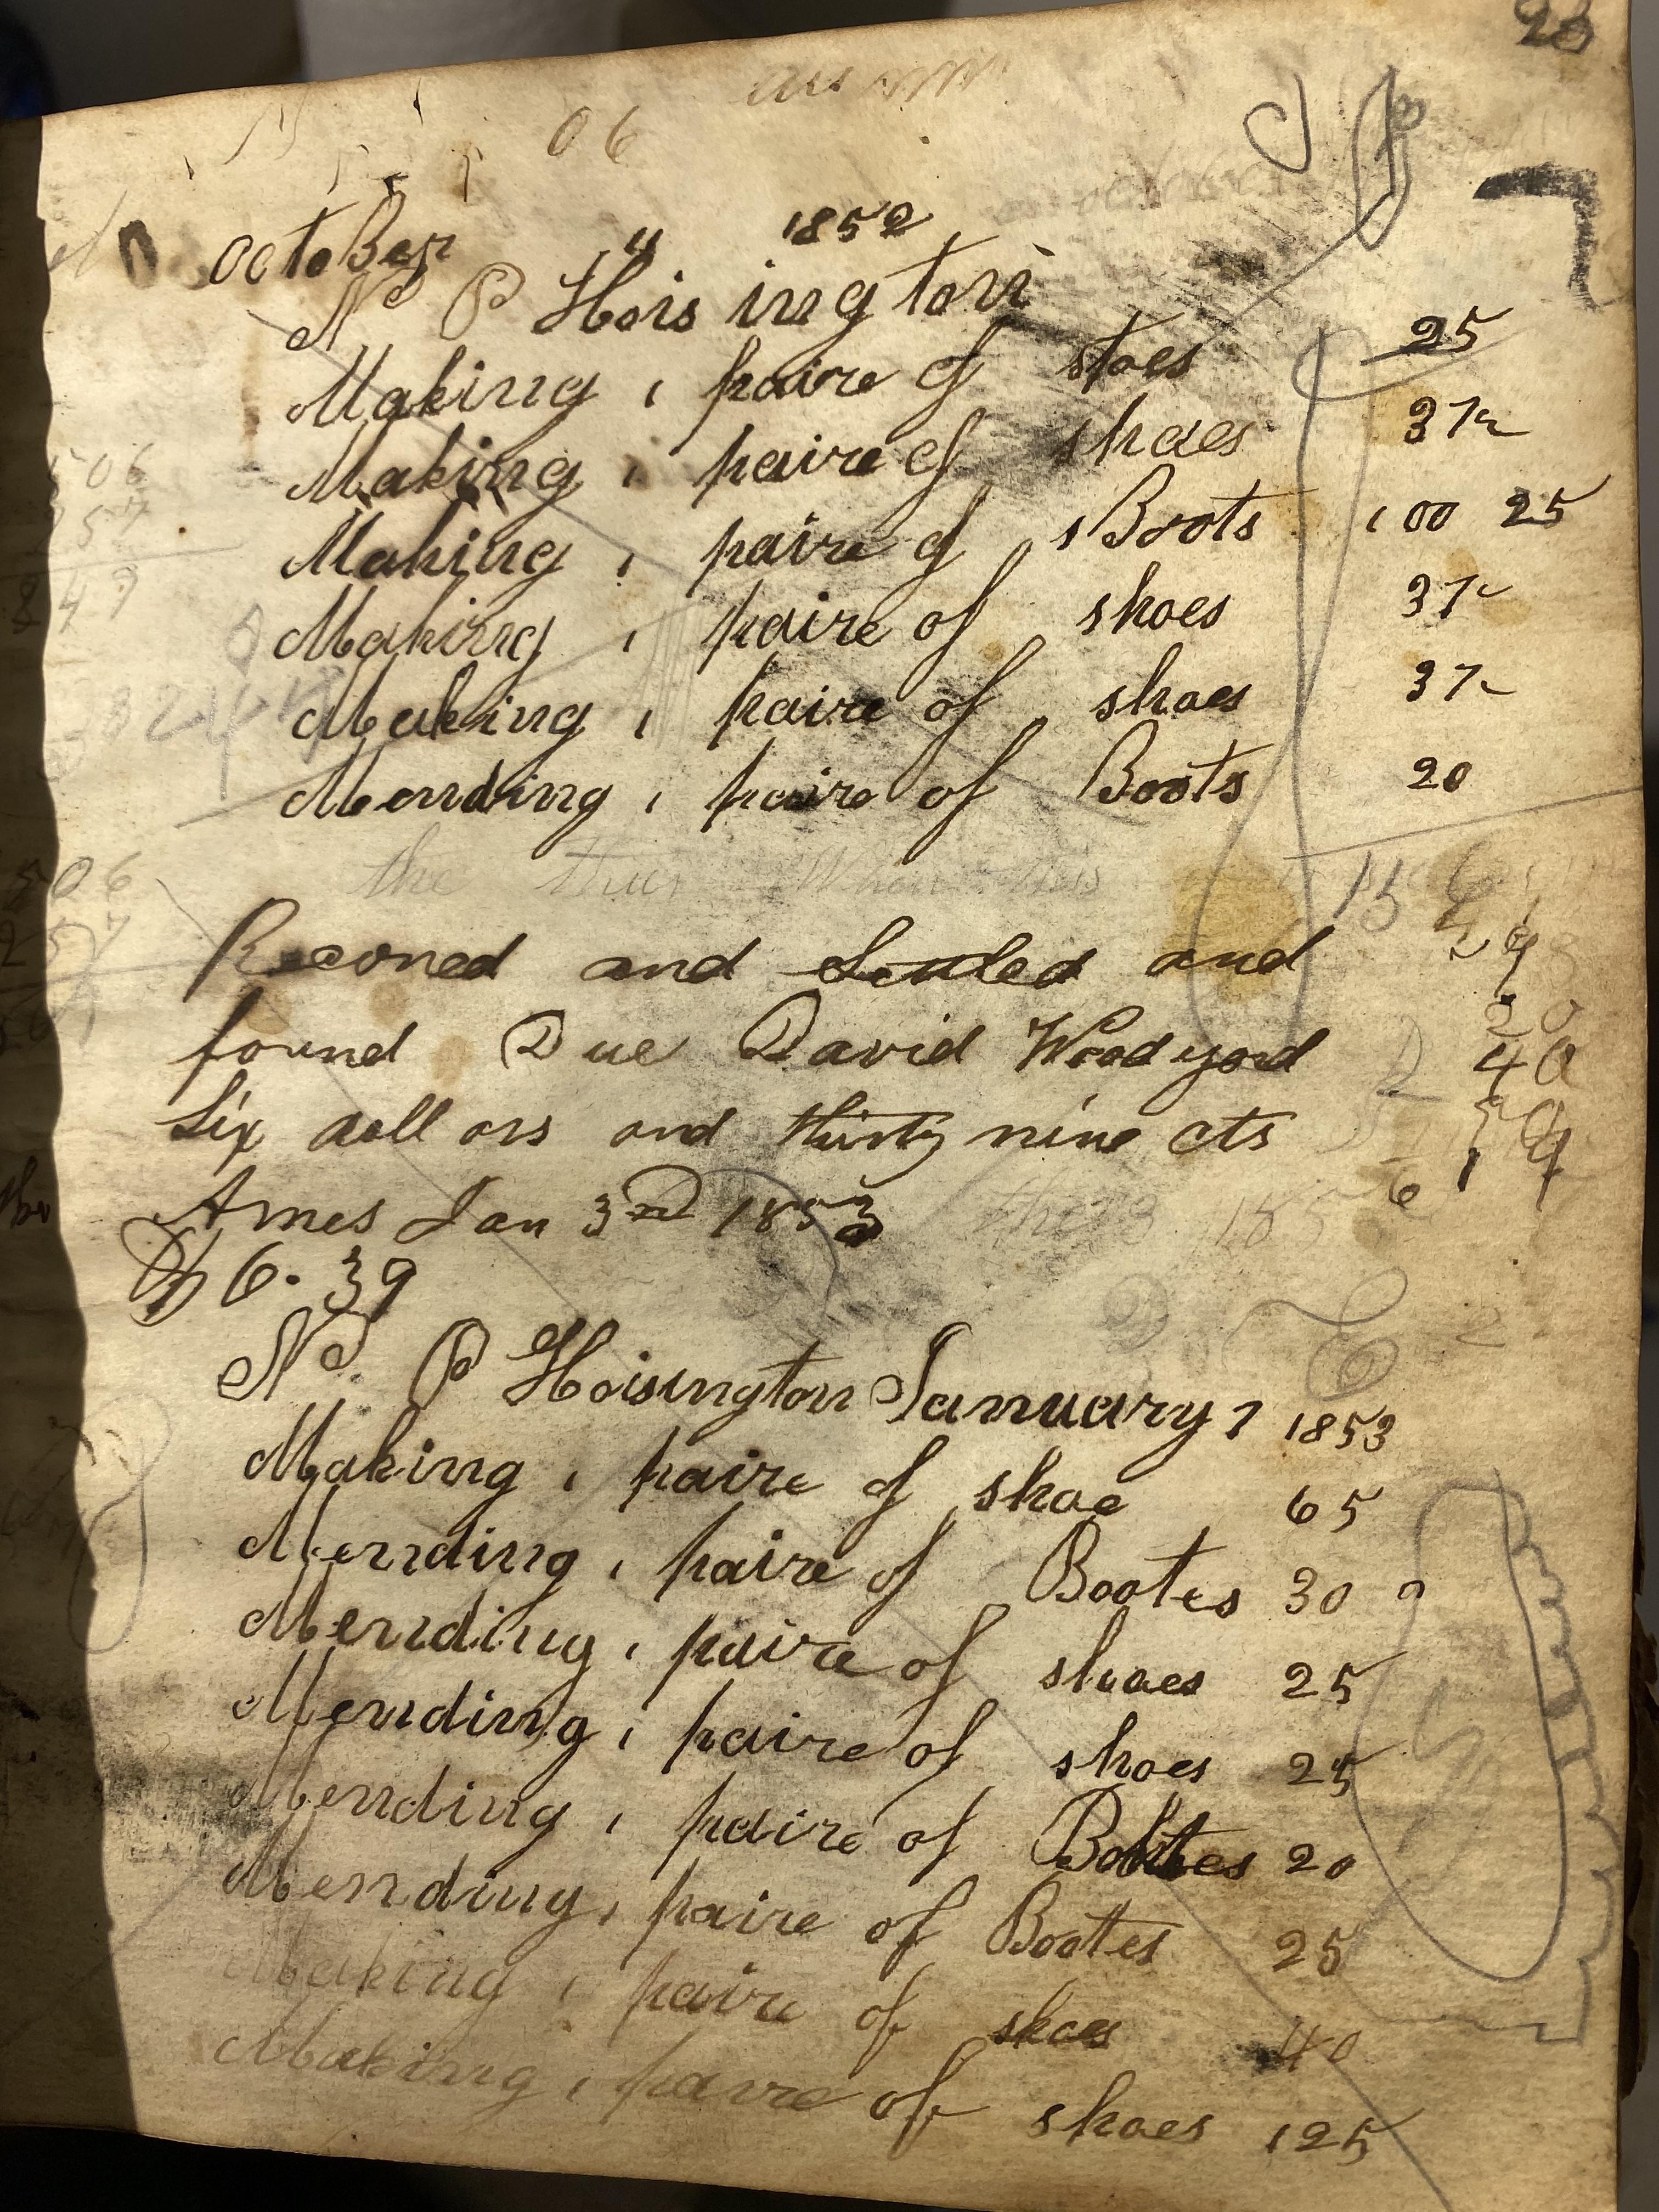 28
06
October 4 1852
N P Hoisington
Making 1 paire of shoes 25
Making 1 paire of shoes 37½
Making 1 paire of Boots 1 00 25
Making 1 paire of shoes 37½
Making 1 paire of shoes 37½
Mending 1 paire of Boots 20
the
Reconed and Settled and
found Due David Woodyard
Six dollars and thirty nine cts
Ames Jan 3rd 1853
$6.39
N P Hoisington January 1 1853
Making 1 paire of shoe 65
Mending 1 paire of Bootes 30
Mending 1 paire of shoes 25
Mending 1 paire of shoes 25
Mending 1 paire of Bootes 20
Mending 1 paire of Bootes 25
Making 1 paire of shoes 40
Making 1 paire of shoes 125